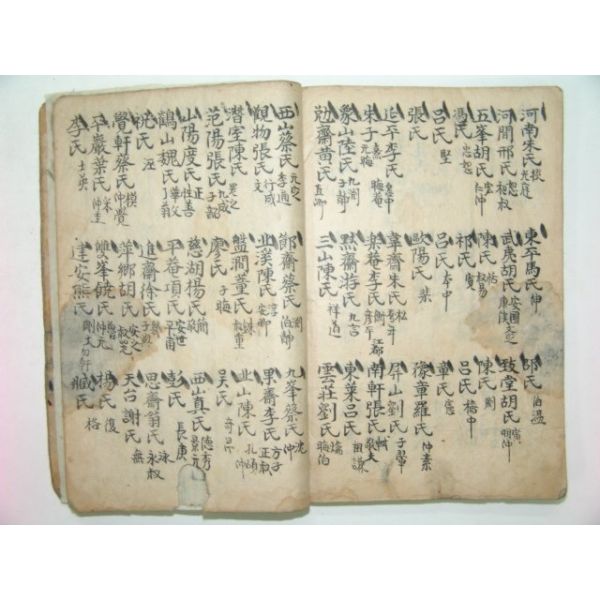 河南朱氏 光庭 東平馬氏 伸 邵氏 伯溫
河間邢氏 恕 和叔 武夷胡氏 安國 康侯 文定 致堂胡氏 寅 明仲
五峯胡氏 宏 仁仲 陳氏 叔易 陳氏 剛
馮氏 忠恕 祁氏 寬 呂氏 稽中
呂氏 堅 呂氏 本中 章氏 憲
張氏 歐陽氏 棐 復章羅氏 仲素
延平李氏 愿中 韋齋朱氏 松 喬年 屏山劉氏 子翬
朱子 熹 元晦 晦菴 樂菴李氏 衡 彦平 江都 南軒張氏 栻 敬夫
象山陸氏 九淵 子靜 默齋游氏 九言 東萊呂氏 祖謙
勉齋黃氏 直卿 三山陳氏 祥道 雲莊劉氏 爚 晦伯
西山蔡氏 元定 季通 節齋蔡氏 淵 伯靜 九峯蔡氏 沈 仲
觀物張氏 行成 北溪陳氏 淳 安卿 果齋李氏 方子 正叔
潛室陳氏 器之 盤澗董氏 銖 叔重 北山陳氏 孔碩 仲
范陽張氏 九成 子韶 廖氏 子晦 吳氏
山陽度氏 正 性善 慈湖楊氏 簡 西山真氏 德秀 景元
鶴山魏氏 華父 了翁 平菴項氏 安世 平甫 彭氏 長庚
祝氏 進齋徐氏 思齋翁氏 永叔
覺軒蔡氏 模 仲覺 萍鄉胡氏 安之 叔芝 天台謝氏 無
平巖葉氏 采 仲圭 雙峯饒氏 魯 仲元 楊氏 復
李氏 士英 建安熊氏 剛大 臧氏 格